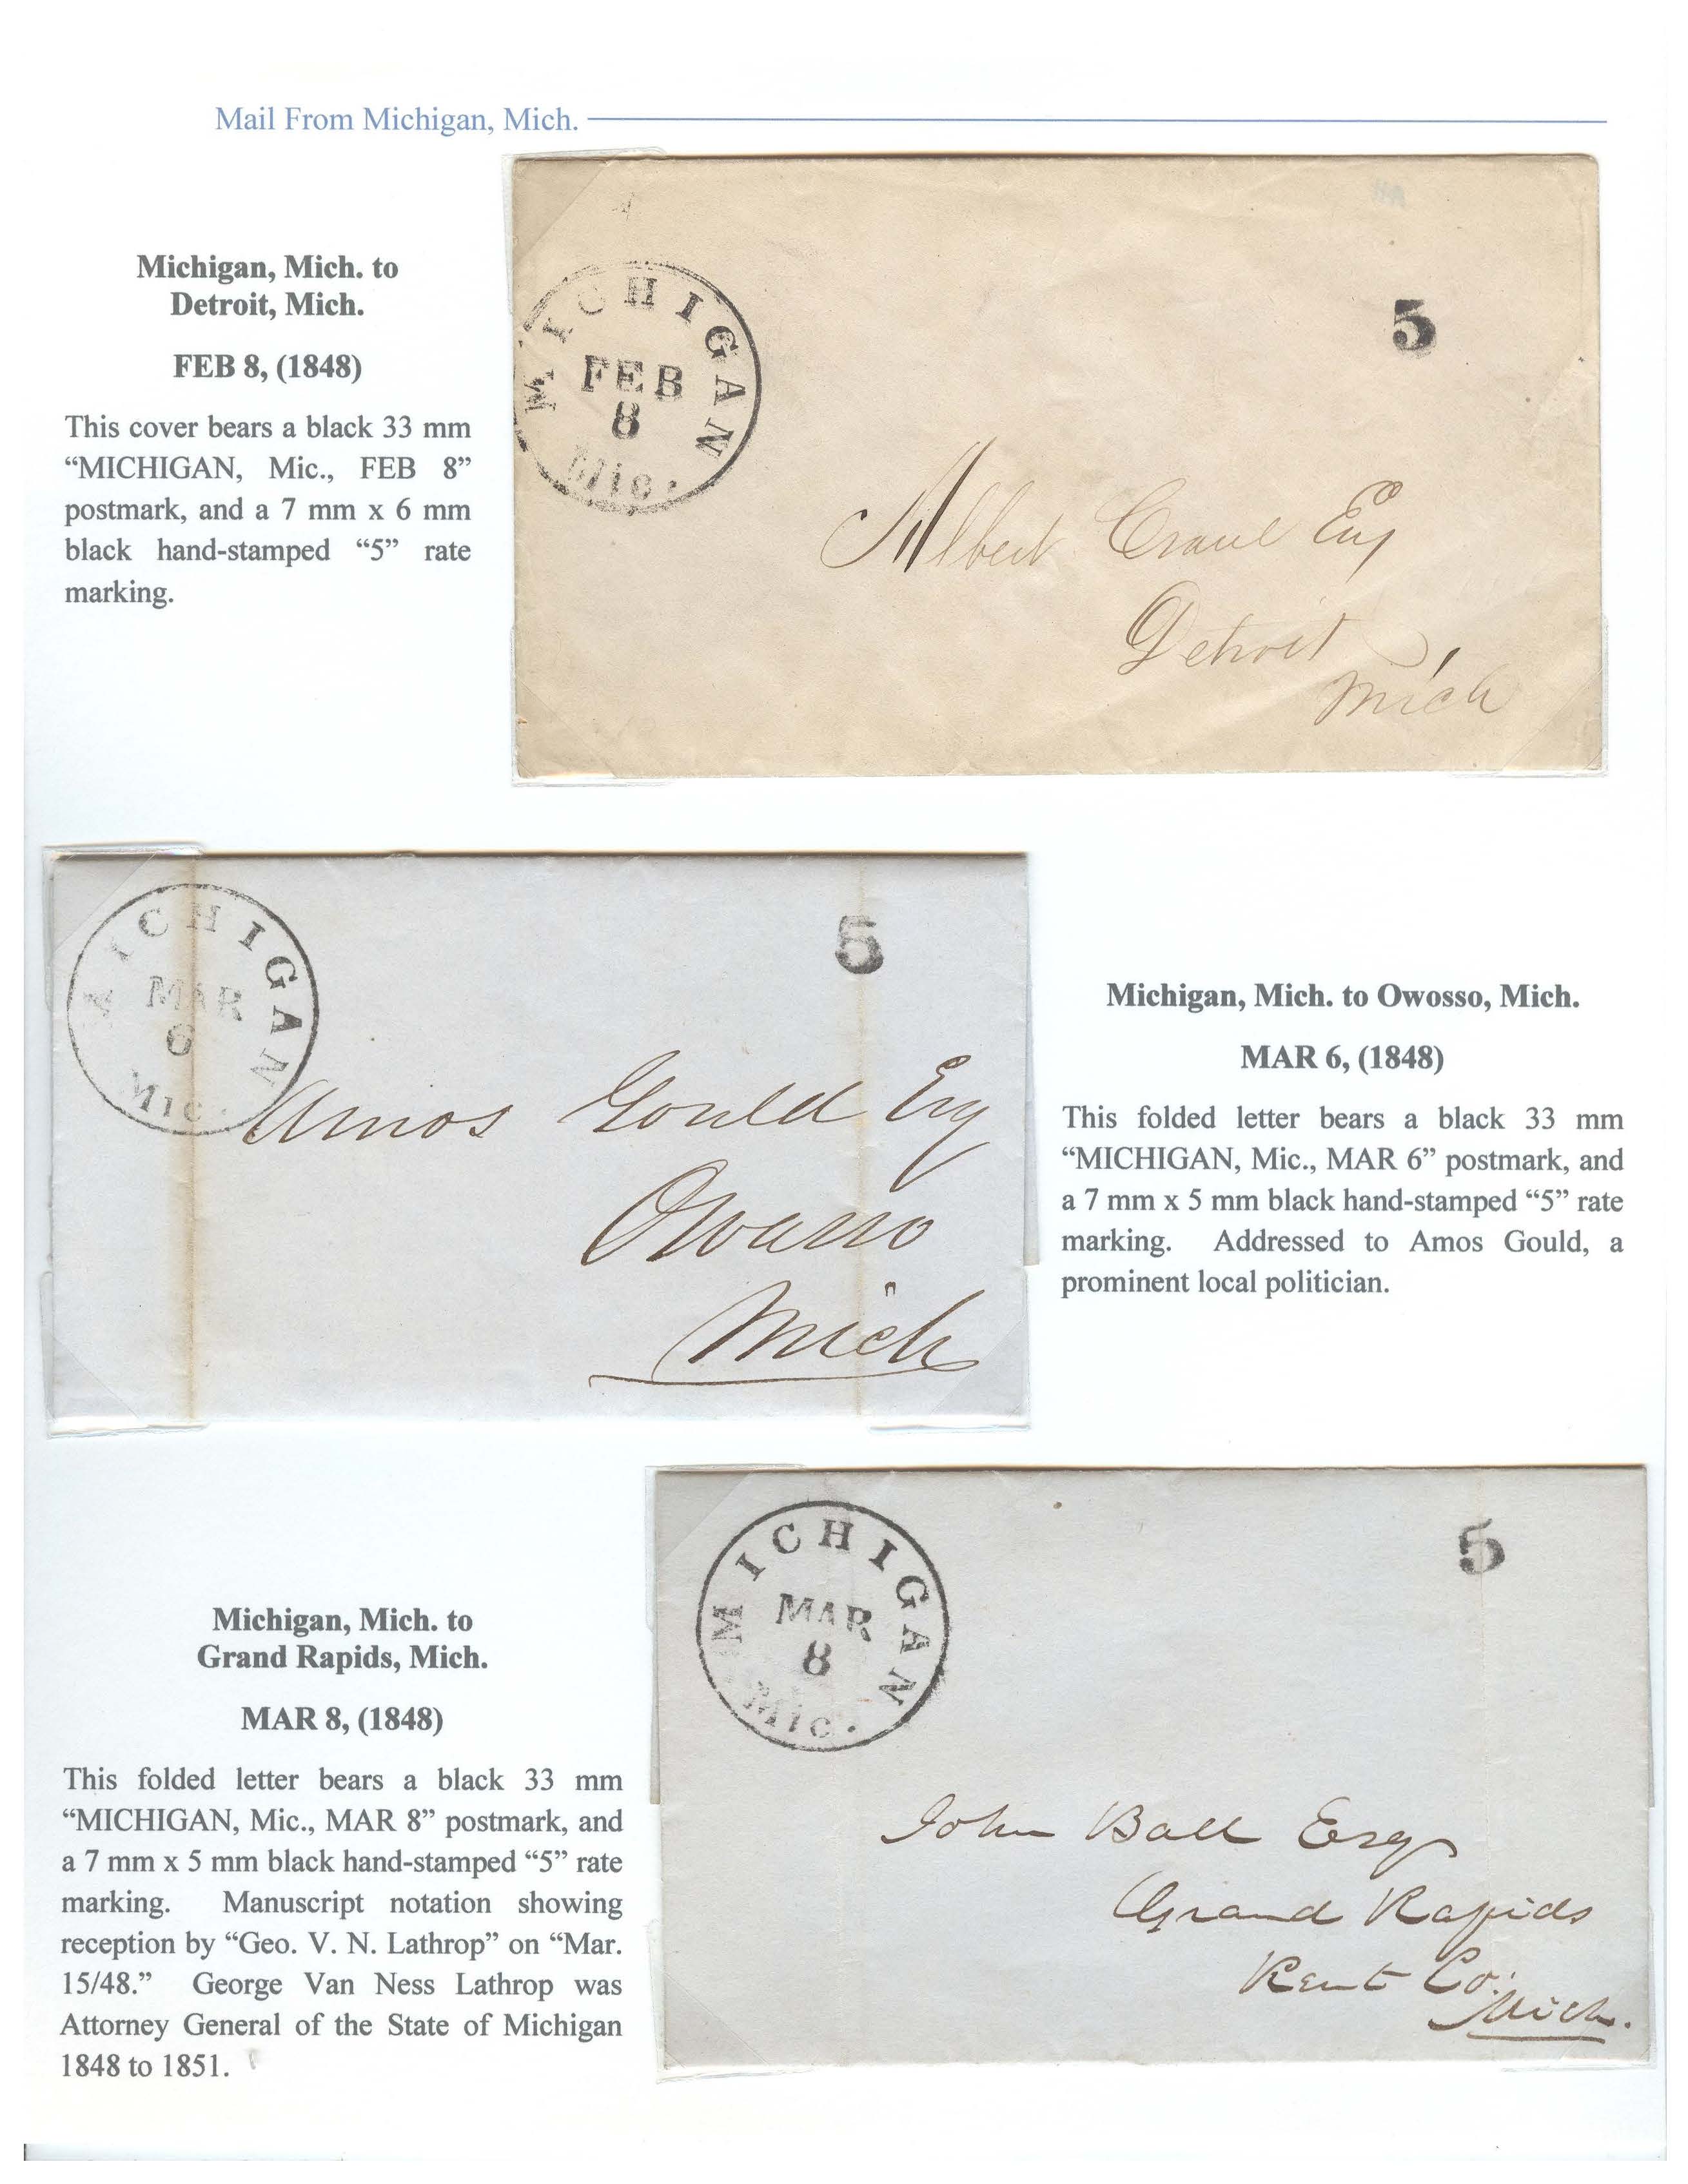 Mail From Michigan, Mich.
Michigan, Mich. to
Detroit, Mich.
FEB 8, (1848)
This cover bears a black 33 mm
“MICHIGAN, Mic., FEB 8”
postmark, and a 7 mm x 6 mm
black hand-stamped “5” rate
marking.
MICHIGAN
FEB
8
MIC.
5
Albert Crane Esq
Detroit
Mich
MICHIGAN
MAR
6
MIC.
5
Amos Gould Esq
Owosso
Mich
Michigan, Mich. to Owosso, Mich.
MAR 6, (1848)
This folded letter bears a black 33 mm
“MICHIGAN, Mic., MAR 6” postmark, and
a 7 mm x 5 mm black hand-stamped “5” rate
marking. Addressed to Amos Gould, a
prominent local politician.
Michigan, Mich. to
Grand Rapids, Mich.
MAR 8, (1848)
This folded letter bears a black 33 mm
“MICHIGAN, Mic., MAR 8” postmark, and
a 7 mm x 5 mm black hand-stamped “5” rate
marking. Manuscript notation showing
reception by “Geo. V. N. Lathrop” on “Mar.
15/48.” George Van Ness Lathrop was
Attorney General of the State of Michigan
1848 to 1851.
MICHIGAN
MAR
8
MIC.
5
John Ball Esq
Grand Rapids
Kent Co.
Mich.